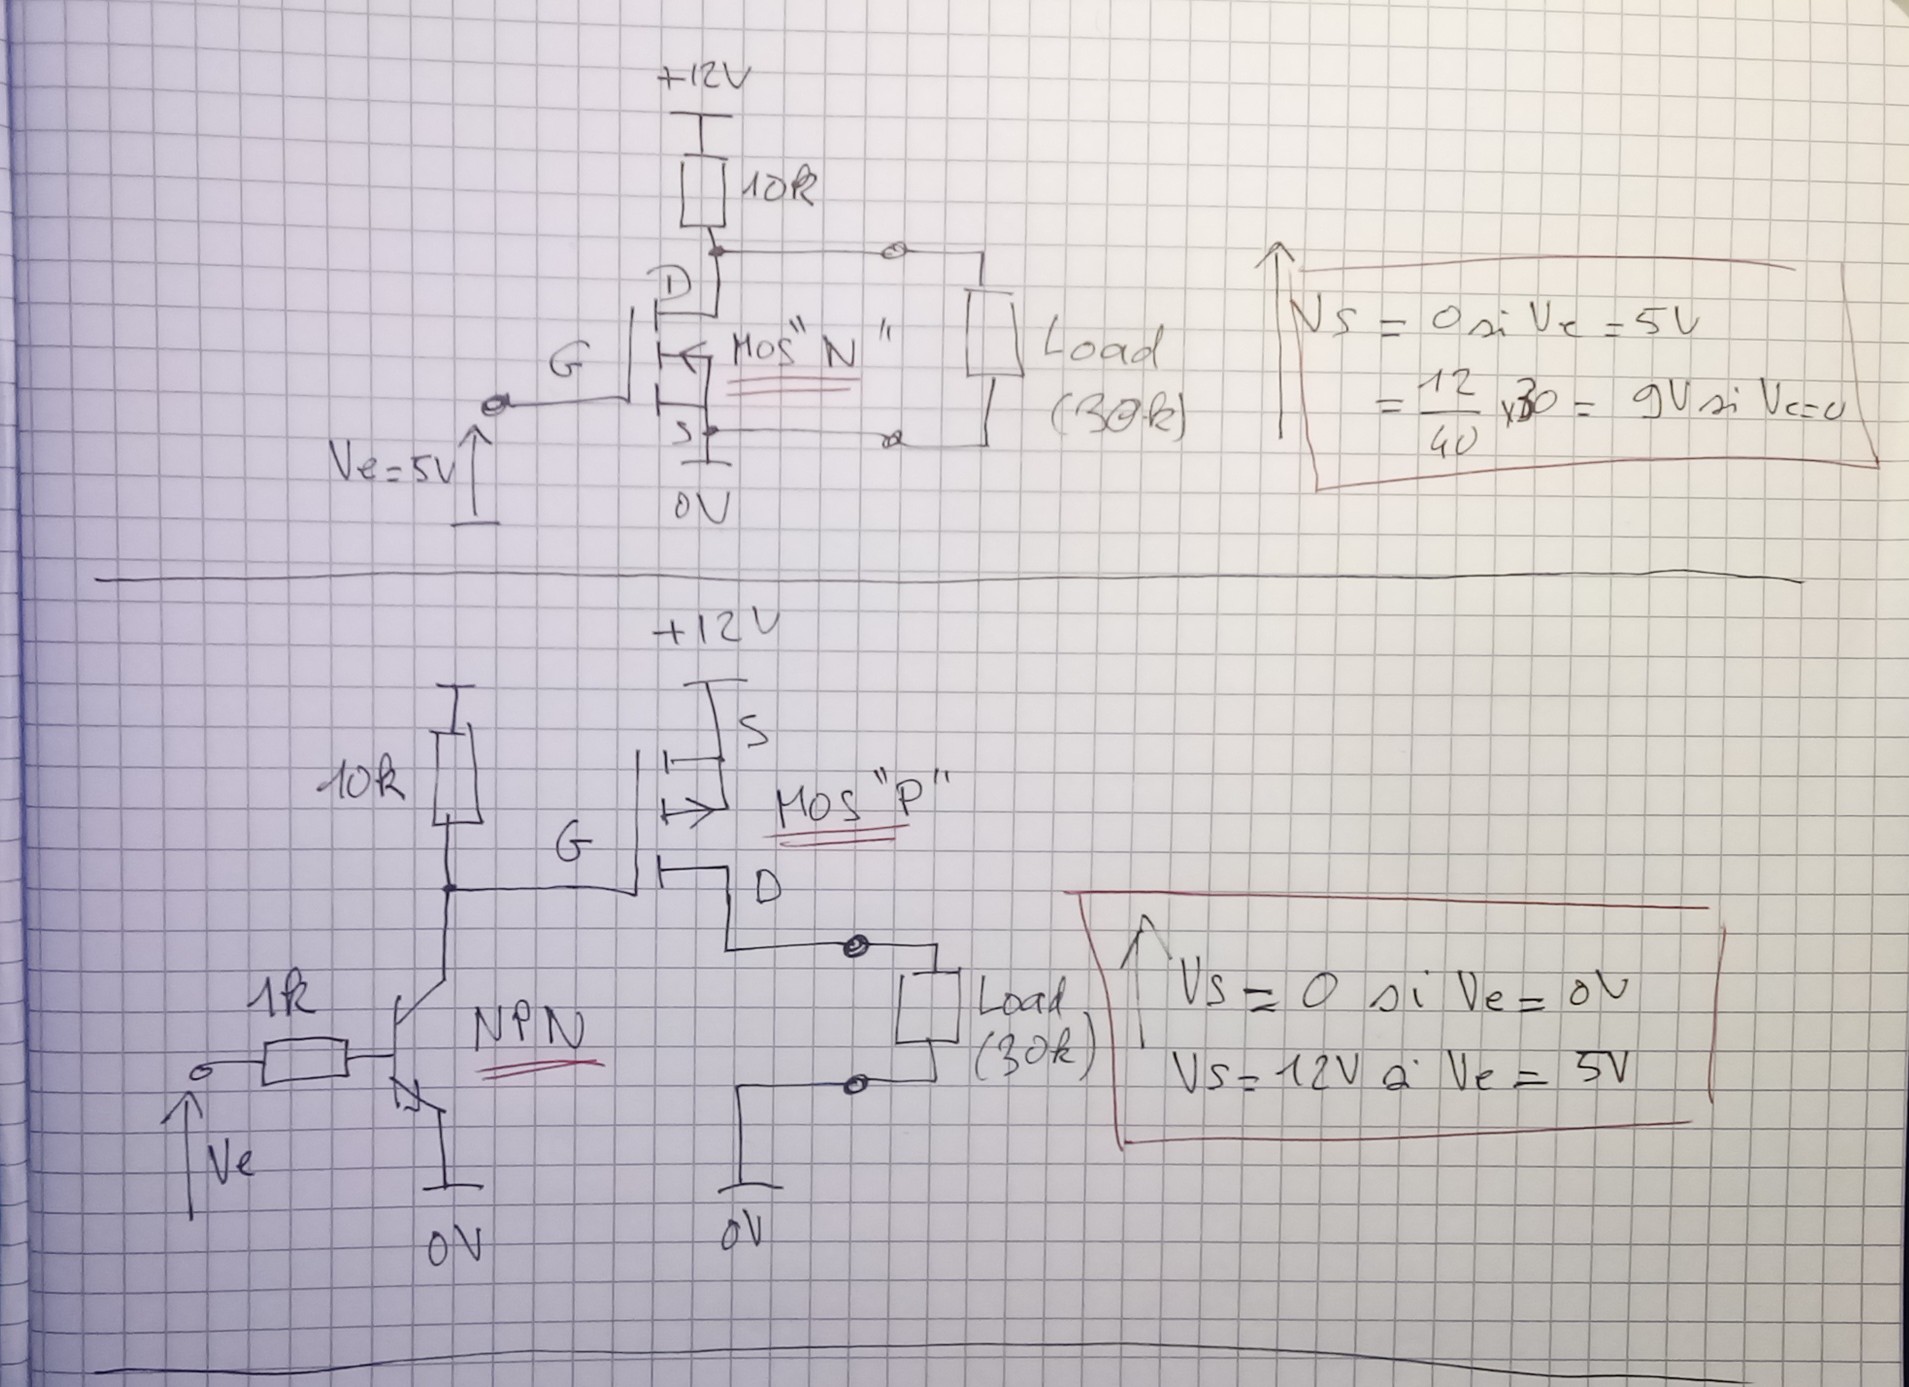 +12V
10k
D
G
MOS "N"
Load
(30k)
S
Ve=5V
0V
Vs = 0 si Ve = 5V
= 12/40 x30 = 9V si Ve=0
+12V
S
10k
MOS "P"
G
D
1k
NPN
Load
(30k)
Ve
0V
0V
Vs = 0 si Ve = 0V
Vs = 12V si Ve = 5V